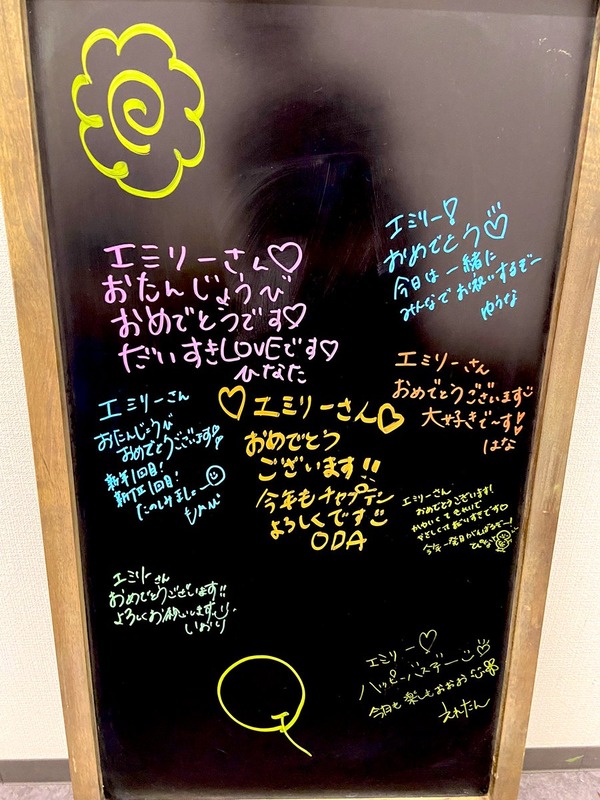 エミリーさん♡
おたんじょうび
おめでとうです♡
だいすきLOVEです♡
ひなた
エミリー!
おめでとう♡
今日は一緒に
みんなでお祝いするぞー
ゆうな
エミリーさん
おめでとうございます
大好きで〜す!
はな
エミリーさん
おたんじょうび
おめでとうございます!
新年1回目!
新体制1回目!
たのしみましょー
♡エミリーさん♡
おめでとう
ございます!!
今年もチャプテン
よろしくです
ODA
エミリーさん
おめでとうございます!
かわいくてきれいで
やさしくて大すきです♡
今年一発目がんばるぞー!
エミリーさん
おめでとうございます!!
よろしくお願いします
いおり
エミリー♡
ハッピーバースデー
今日も楽しもおおよう
えれたん